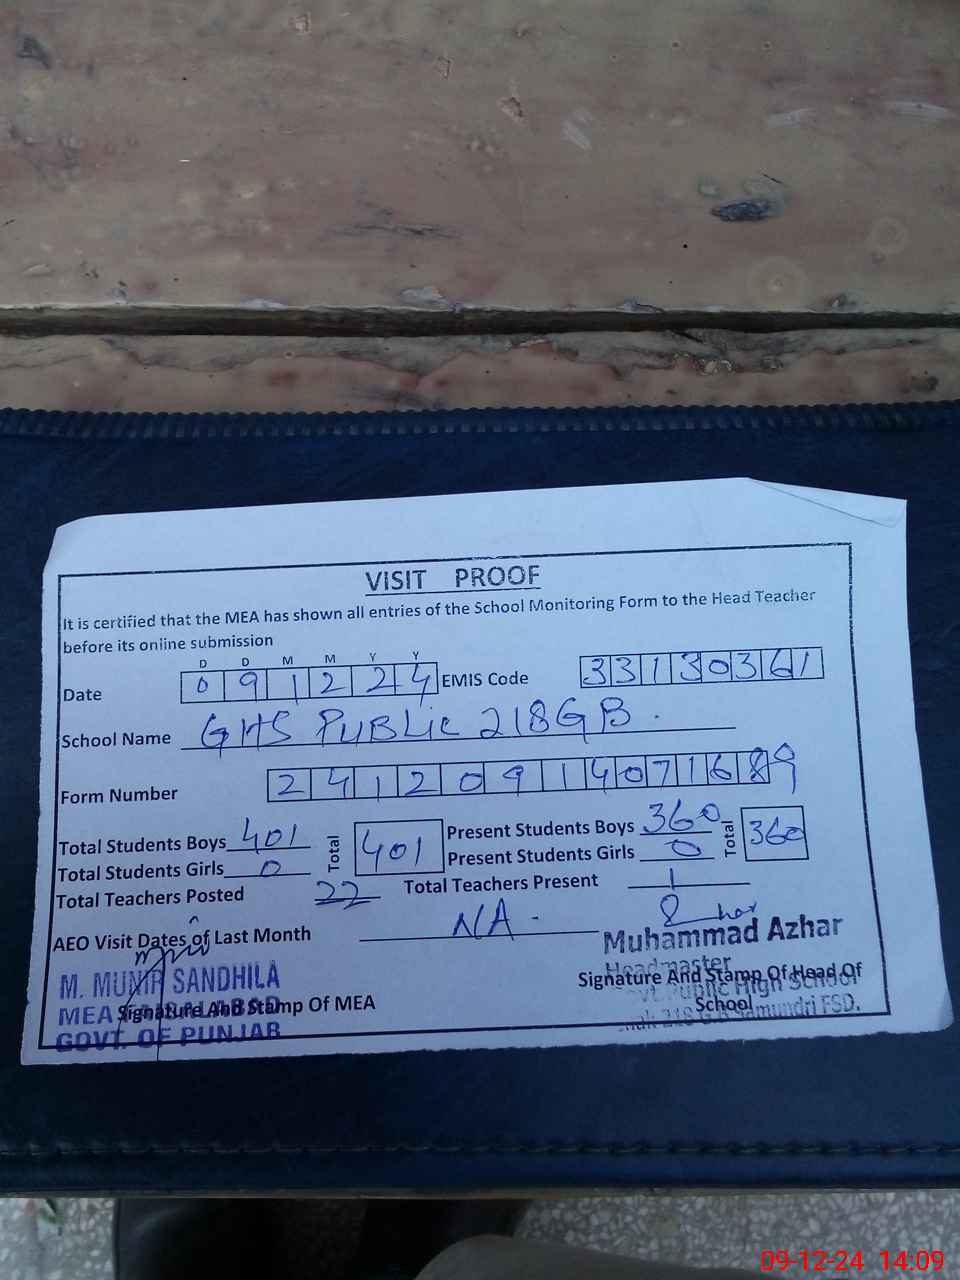 VISIT PROOF
It is certified that the MEA has shown all entries of the School Monitoring Form to the Head Teacher
before its online submission
D D M M Y Y
Date 0 9 1 2 2 4 EMIS Code 3 3 1 3 0 3 6 1
School Name GHS PUBLIC 218 GB.
Form Number 2 4 1 2 0 9 1 4 0 7 1 6 8 9
Total Students Boys 401 Total 401 Present Students Boys 360 Total 360
Total Students Girls 0 Present Students Girls 0
Total Teachers Posted 22 Total Teachers Present 1
AEO Visit Dates of Last Month N A -
Muhammad Azhar
Headmaster
Signature And Stamp Of Head Of
School
Govt. Public High School
218 G.B FSD.
M. MUNIR SANDHILA
MEA FAISALABAD
Signature And Stamp Of MEA
GOVT. OF PUNJAB
09-12-24 14:09